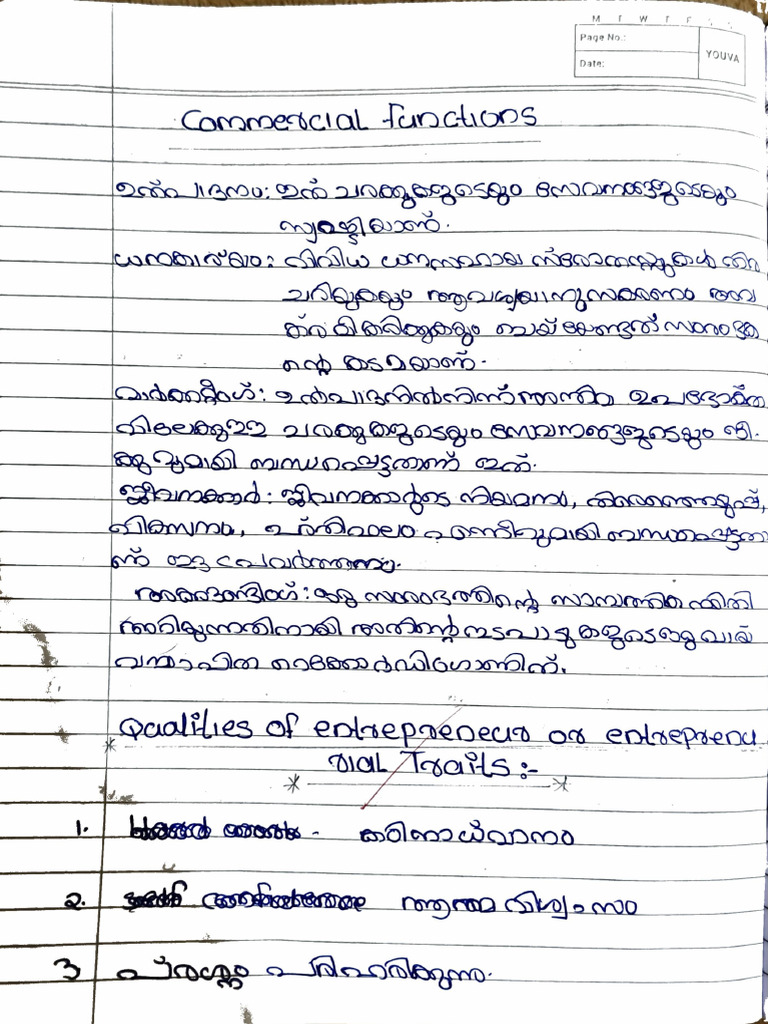 M T W T F
Page No.:
Date:
YOUVA
Commercial functions
ഉത്പാദനം: ഇത് ചരക്കുകളുടെയും സേവനങ്ങളുടെയും
സൃഷ്ടിയാണ്.
ധനകാര്യം: വിവിധ ധനസഹായ സ്രോതസ്സുകൾ തിരി
ച്ചറിയുകയും ആവശ്യാനുസരണം അവ
ക്രമീകരിക്കുകയും ചെയ്യേണ്ടത് സംരംഭക
ന്റെ കടമയാണ്.
മാർക്കറ്റിംഗ്: ഉൽപാദനിൽനിന്ന് അന്തിമ ഉപഭോക്ത
വിലേക്കുള്ള ചരക്കുകളുടെയും സേവനങ്ങളുടെയും ഒഴു
ക്കുമായി ബന്ധപ്പെട്ടതാണ് ഇത്.
ജീവനക്കാർ: ജീവനക്കാരുടെ നിയമനം, തിരഞ്ഞെടുപ്പ്,
വികസനം, പ്രതിഫലം എന്നിവയുമായി ബന്ധപ്പെട്ടതാ
ണ് ഈ പ്രവർത്തനം.
അക്കൗണ്ടിംഗ്: ഒരു സംരംഭത്തിന്റെ സാമ്പത്തിക സ്ഥിതി
അറിയുന്നതിനായി അതിന്റെ ഇടപാടുകളുടെ
റെക്കോർഡിംഗാണിത്.
Qualities of entrepreneur or entreprenu
rial Traits:-
1. കഠിനാധ്വാനം
2. ആത്മവിശ്വാസം
3 പ്രശ്നം പരിഹരിക്കുന്ന.